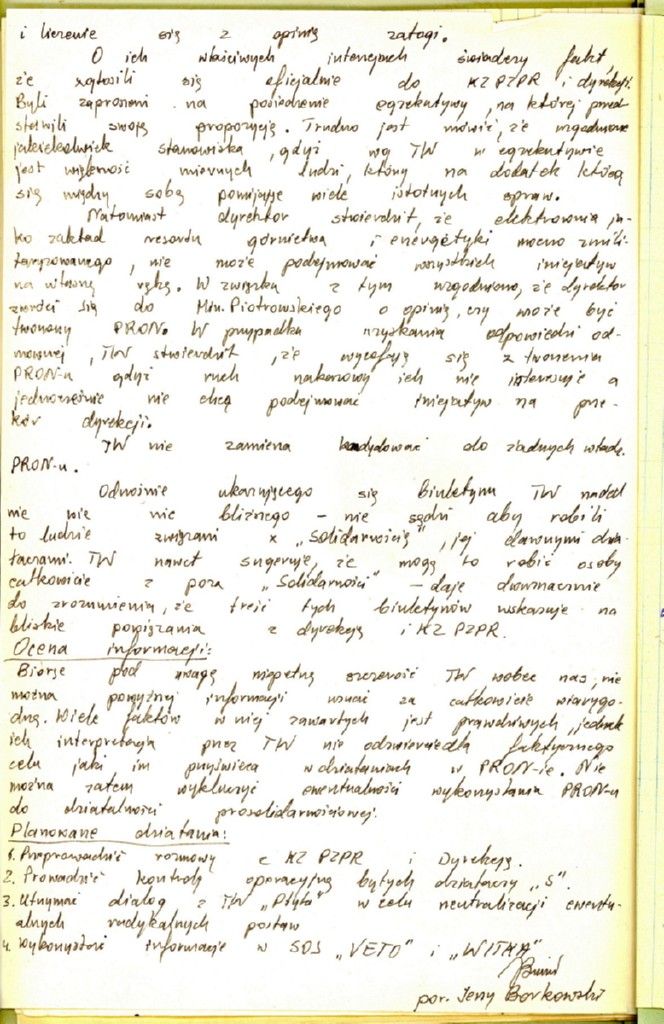 i liczenie się z opinią załogi.
O ich właściwych intencjach świadczy fakt,
że zgłosili się oficjalnie do KZ PZPR i dyrekcji.
Byli zaproszeni na posiedzenie egzekutywy, na której przed-
stawili swoją propozycję. Trudno jest mówić, że uzgodniono
jakiekolwiek stanowiska, gdyż wg TW w egzekutywie
jest większość miernych ludzi, którzy na dodatek kłócą
się między sobą pomijając wiele istotnych spraw.
Natomiast dyrektor stwierdził, że elektrownia ja-
ko zakład resortu górnictwa i energetyki mocno zmili-
taryzowanego, nie może podejmować wszystkich inicjatyw
na własną rękę. W związku z tym uzgodniono, że dyrektor
zwróci się do Min. Piotrowskiego o opinię, czy może być
tworzony PRON. W przypadku uzyskania odpowiedzi od-
mownej, TW stwierdził, że wycofają się z tworzenia
PRON-u gdyż ruch nakazowy ich nie interesuje a
jednocześnie nie chcą podejmować inicjatyw na prze-
kór dyrekcji.
TW nie zamierza kandydować do żadnych władz
PRON-u.
Odnośnie ukazującego się biuletynu TW nadal
nie wie nic bliższego – nie sądzi aby robili
to ludzie związani z „Solidarnością", jej dawnymi dzia-
łaczami. TW nawet sugeruje, że mogą to robić osoby
całkowicie z poza „Solidarności" – daje dwuznacznie
do zrozumienia, że treść tych biuletynów wskazuje na
bliskie powiązania z dyrekcją i KZ PZPR.
Ocena informacji:
Biorąc pod uwagę niepełną szczerość TW wobec nas, nie
można powyższej informacji uznać za całkowicie wiarygo-
dną. Wiele faktów w niej zawartych jest prawdziwych, jednak
ich interpretacja przez TW nie odzwierciedla faktycznego
celu jaki im przyświeca w działaniach w PRON-ie. Nie
można zatem wykluczyć ewentualności wykorzystania PRON-u
do działalności prosolidarnościowej.
Planowane działania:
1. Przeprowadzić rozmowy z KZ PZPR i Dyrekcją.
2. Prowadzić kontrolę operacyjną byłych działaczy „S".
3. Utrzymać dialog z TW „Płyta" w celu neutralizacji ewentu-
alnych radykalnych postaw
4. Wykorzystać informacje w SOS „VETO" i „WITKA"
por. Jerzy Borkowski